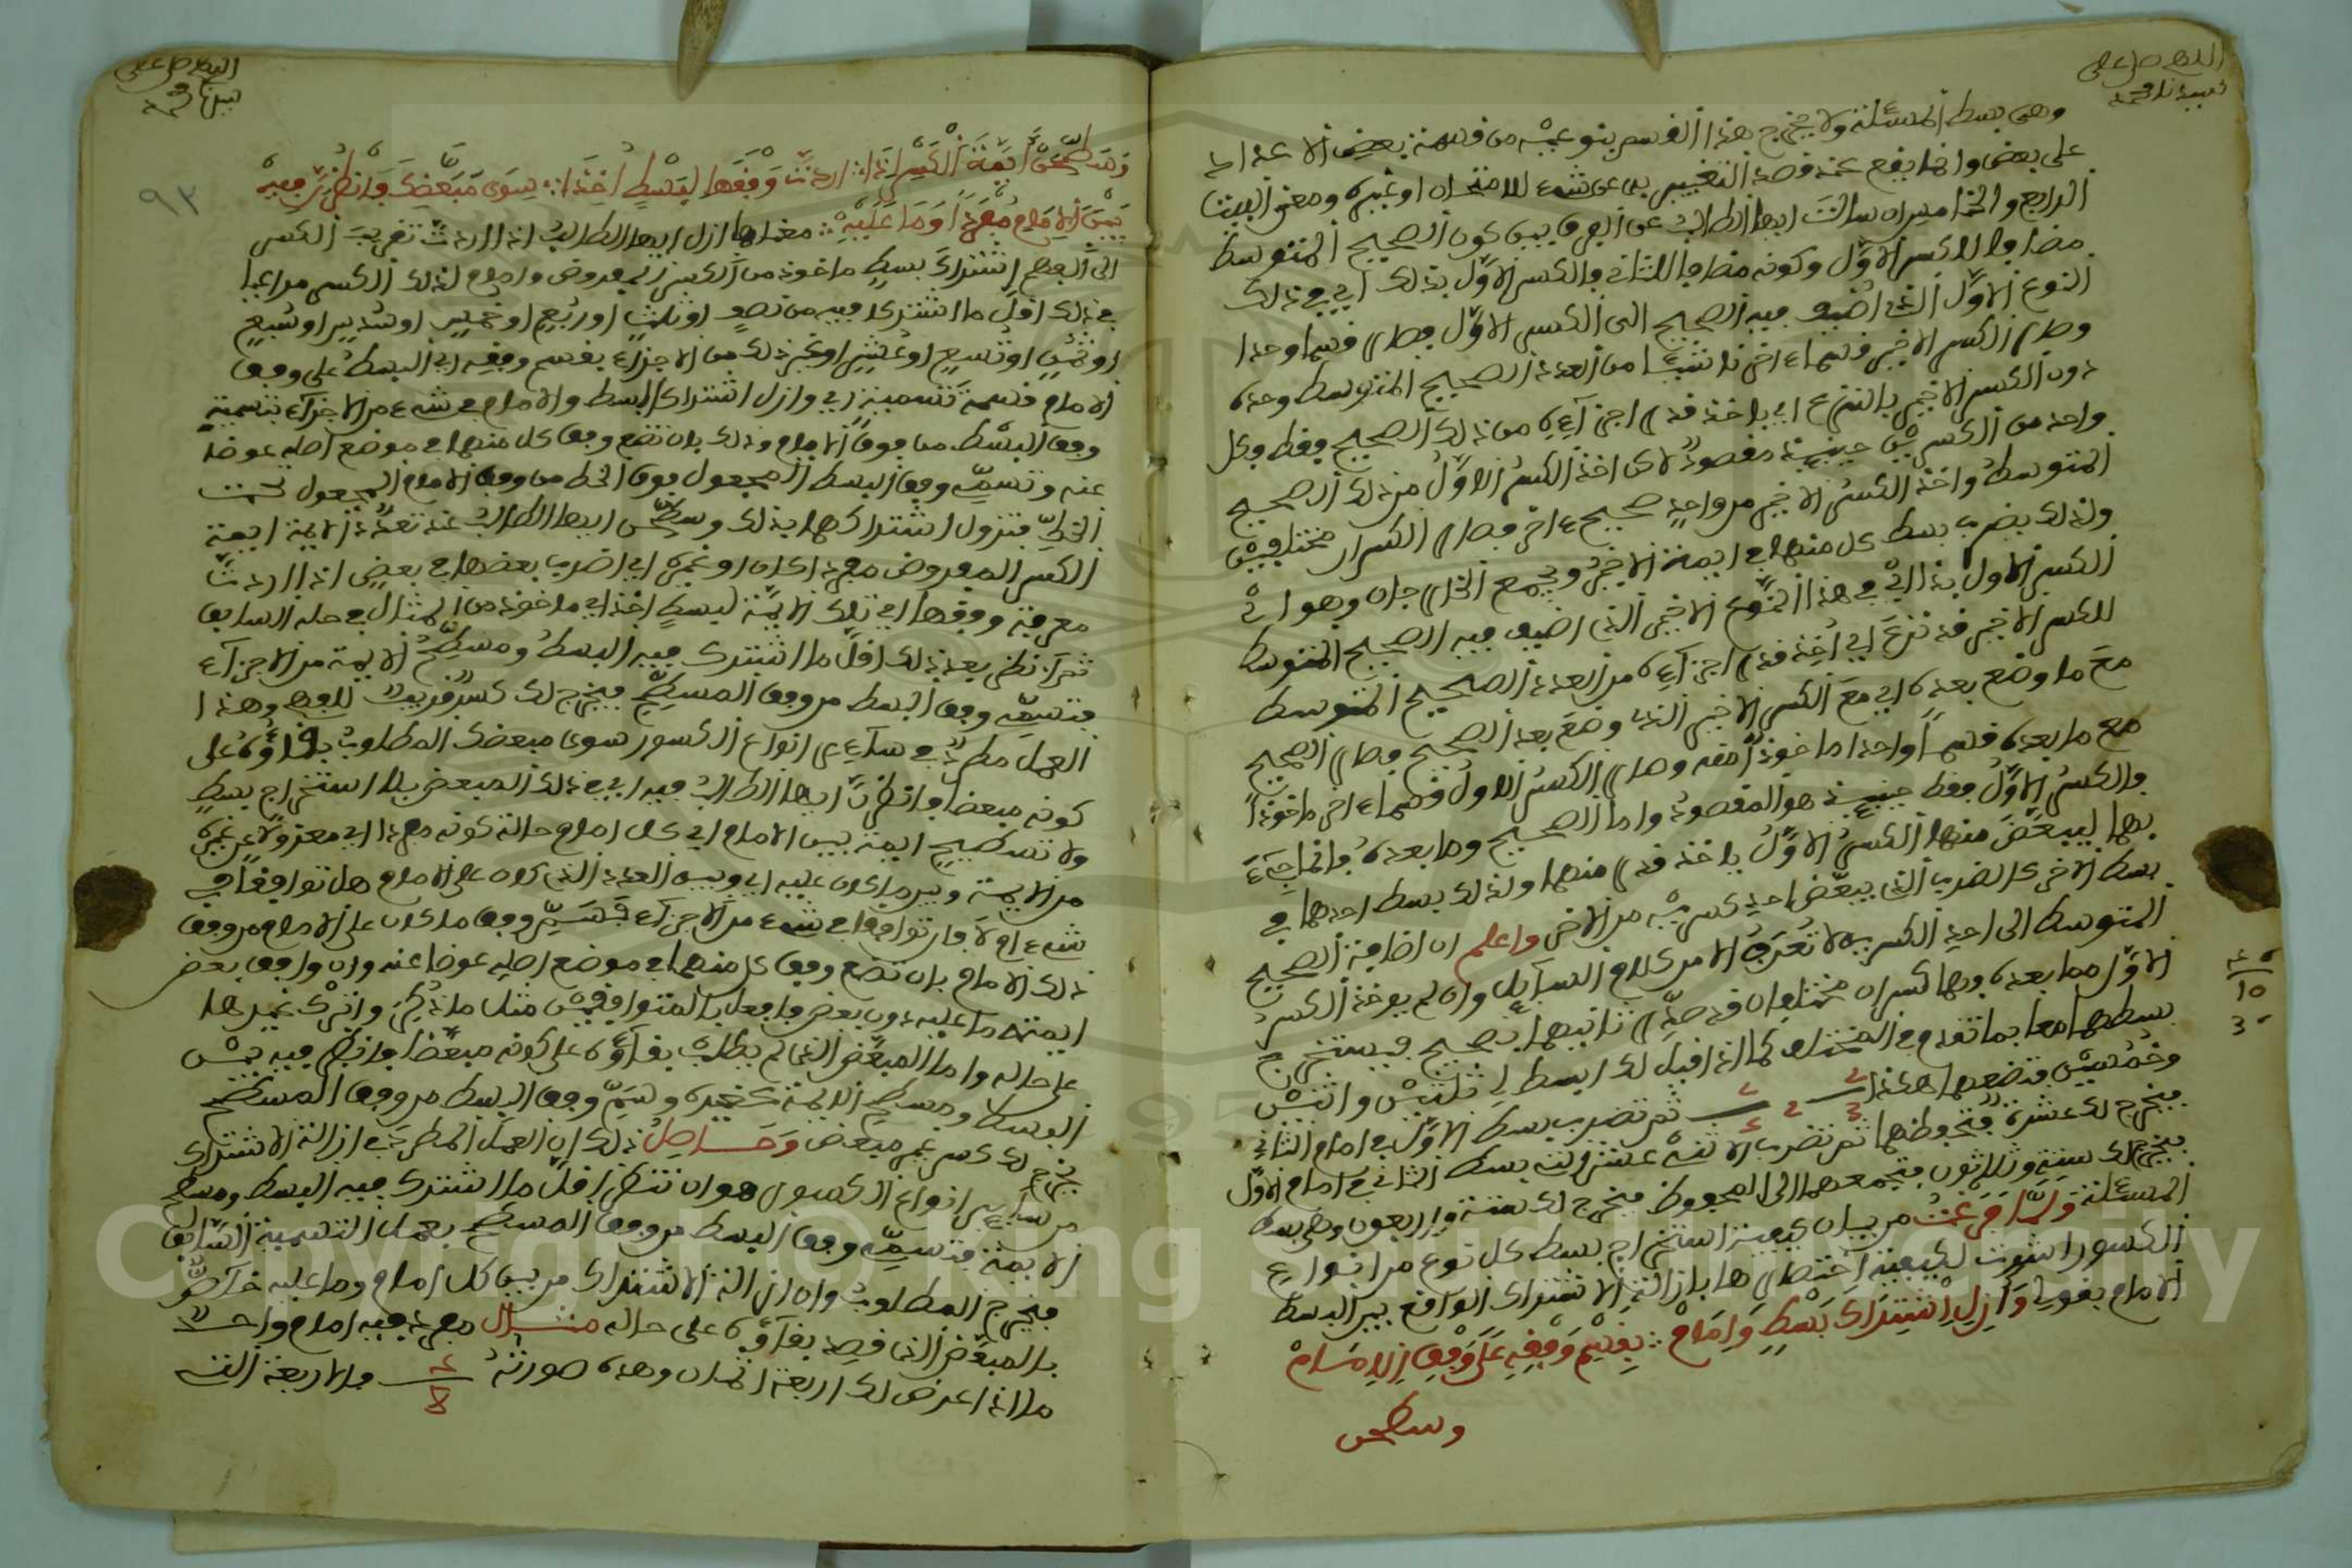 اللهم صل على
سيدنا محمد
وهى بسط المسئلة ولا يخرج هذا القسم بنوعيه من قسمة بعض الاعداد
على بعض وانما يقع عند قصد التغيير لشىء للامتحان او غيره ومعنى البيت
الرابع والخامس ان سالت ايها الطالب عن الفرق بين كون الصحيح المتوسط
مضافا للكسر الاول وكونه مضافا للثانى فالكسر الاول بذلك اى فى ذلك
النوع الاول الذى اضيف فيه الصحيح الى الكسر الاول فصار قسما واحدا
وصار الكسر الاخير قسما ءاخر نائبا من العدد الصحيح المتوسط وحده
دون الكسر الاخير بالتنزع اى باخذ قدر اجزائه من ذلك الصحيح فقط فكل
واحد من الكسرين حينئذ مقصود لاكن اخذ الكسر الاول من ذلك الصحيح
المتوسط واخذ الكسر الاخير من واحد صحيح ءاخر فصار الكسران مختلفين
ولذلك يضرب بسط كل منهما فى ايمة الاخر ويجمع الخارجان وهو اى
الكسر الاول بذا اى فى هذا النوع الاخير الذى اضيف فيه الصحيح المتوسط
للكسر الاخير قد نزع اى اخذ قدر اجزائه من العدد الصحيح المتوسط
مع ما وضع بعده اى مع الكسر الاخير الذى وضع بعد الصحيح فصار الصحيح
مع ما بعده قسما واحدا ماخوذا منه وصار الكسر الاول قسما ءاخر ماخوذا
فالكسر الاول فقط حينئذ هو المقصود واما الصحيح وما بعده فانما جىء
بهما ليبعض منهما الكسر الاول باخذ قدر منهما ولذلك بسط احدهما فى
بسط الاخر كالضرب الذى يبعض احد كسريه من الاخر واعلم ان اضافة الصحيح
المتوسط الى احد الكسرين لا تعرف الا من كلام السائل وان لم يوخذ الكسر
الاول مما بعده فهما كسران مختلفان قد صدر ثانيهما بصحيح فيستخرج
بسطهما معا بما تقدم فى المختلف كما اذا قيل لك ابسط لى ثلثين واثنين
وخمسين فتضعهما هكذا 2/3 2 2/5 ثم تضرب بسط الاول فى امام الثانى
فيخرج لك عشرة فتحفظها ثم تضرب الاثنى عشر بسط الثانى فى امام الاول
فيخرج لك ستة وثلاثون فتجمعهما الى المحفوظ فيخرج لك ستة واربعون وهى بسط
المسئلة ولما فرغت من بيان كيفية استخراج بسط كل نوع من انواع
الكسور اشرت لكيفية اختصارها بازالة الاشتراك الواقع بين البسط
الامام بقولى وازل اشتراك بسط وامام ∴ بقسم وفقه على وفق الامام
وسطحن
46
15
30
اللهم صل على
سيدنا محمد
٩٣
وسطحن ايمة الكسر اذا ∴ اردت وفقها لبسط اخذا ∴ سوى مبعض فانظرن فيه
بين الامام مفردا وما عليه ∴ معناها ازل ايها الطالب اذا اردت تقريب الكسر
الى الفهم اشتراك بسط ماخوذ من الكسر المفروض وامام لذلك الكسر مراعيا
فى ذلك اقل ما اشتركا فيه من نصف او ثلث او ربع او خمس او سدس او سبع
او ثمن او تسع او عشر او غير ذلك من الاجزاء بقسم وفقه اى البسط على وفق
الامام قسمة تسمية اى وازل اشتراك البسط والامام فى شىء من الاجزاء بتسمية
وفق البسط من فوق الامام وذلك بان تضع وفق كل منهما فى موضع اصله عوضا
عنه وتسمى وفق البسط المجعول فوق الخط من وفق الامام المجعول تحت
الخط فيزول اشتراكهما بذلك وسطحن ايها الطالب عند تعدد الايمة ايمة
الكسر المفروض مفردا كان او غيره اى اضرب بعضها فى بعض اذا اردت
معرفة وفقها اى تلك الايمة لبسط اخذ اى ماخوذ من المثال فى حله السابق
ثم انظر بعد ذلك اقل ما اشترك فيه البسط ومسطح الايمة من الاجزاء
فتسمى وفق البسط من وفق المسطح فيخرج لك كسر قريب للفهم وهذا
العمل مطرد فى سائر انواع الكسور سوى مبعض المطلوب بقاؤه على
كونه مبعضا فانظرن ايها الطالب فيه اى فى ذلك المبعض بلا استخراج بسط
ولا تسطيح ايمة بين الامام اى كل امام حالة كونه مفردا اى معزولا عن غيره
من الايمة وبين ما كان عليه اى وبين العدد الذى كان على الامام هل توافقا فى
شىء ام لا فان توافقا فى شىء من الاجزاء فسم وفق ما كان على الامام من وفق
ذلك الامام بان تضع وفق كل منهما فى موضع اصله عوضا عنه وان وافق بعض
ايمته ما عليه دون بعض فافعل بالمتوافقين مثل ما ذكر واترك غيرها
على حاله واما المبعض الذى لم يطلب بقاؤه على كونه مبعضا فانظر فيه بين
البسط ومسطح الايمة كغيره وسم وفق البسط من وفق المسطح
يخرج لك كسر غير مبعض وحاصل ذلك ان العمل المطرد فى ازالة الاشتراك
من سائر انواع الكسور هو ان تنظر اقل ما اشترك فيه البسط ومسطح
الايمة فتسمى وفق البسط من وفق المسطح بعمل التسمية السابق
فيخرج المطلوب وان ازالة الاشتراك من بين كل امام وما عليه خاص
بالمبعض الذى قصد بقاؤه على حاله مثال مفرد فيه امام واحد
ما اذا عرض لك اربعة اثمان وهذه صورته 4/8 فالاربعة التى